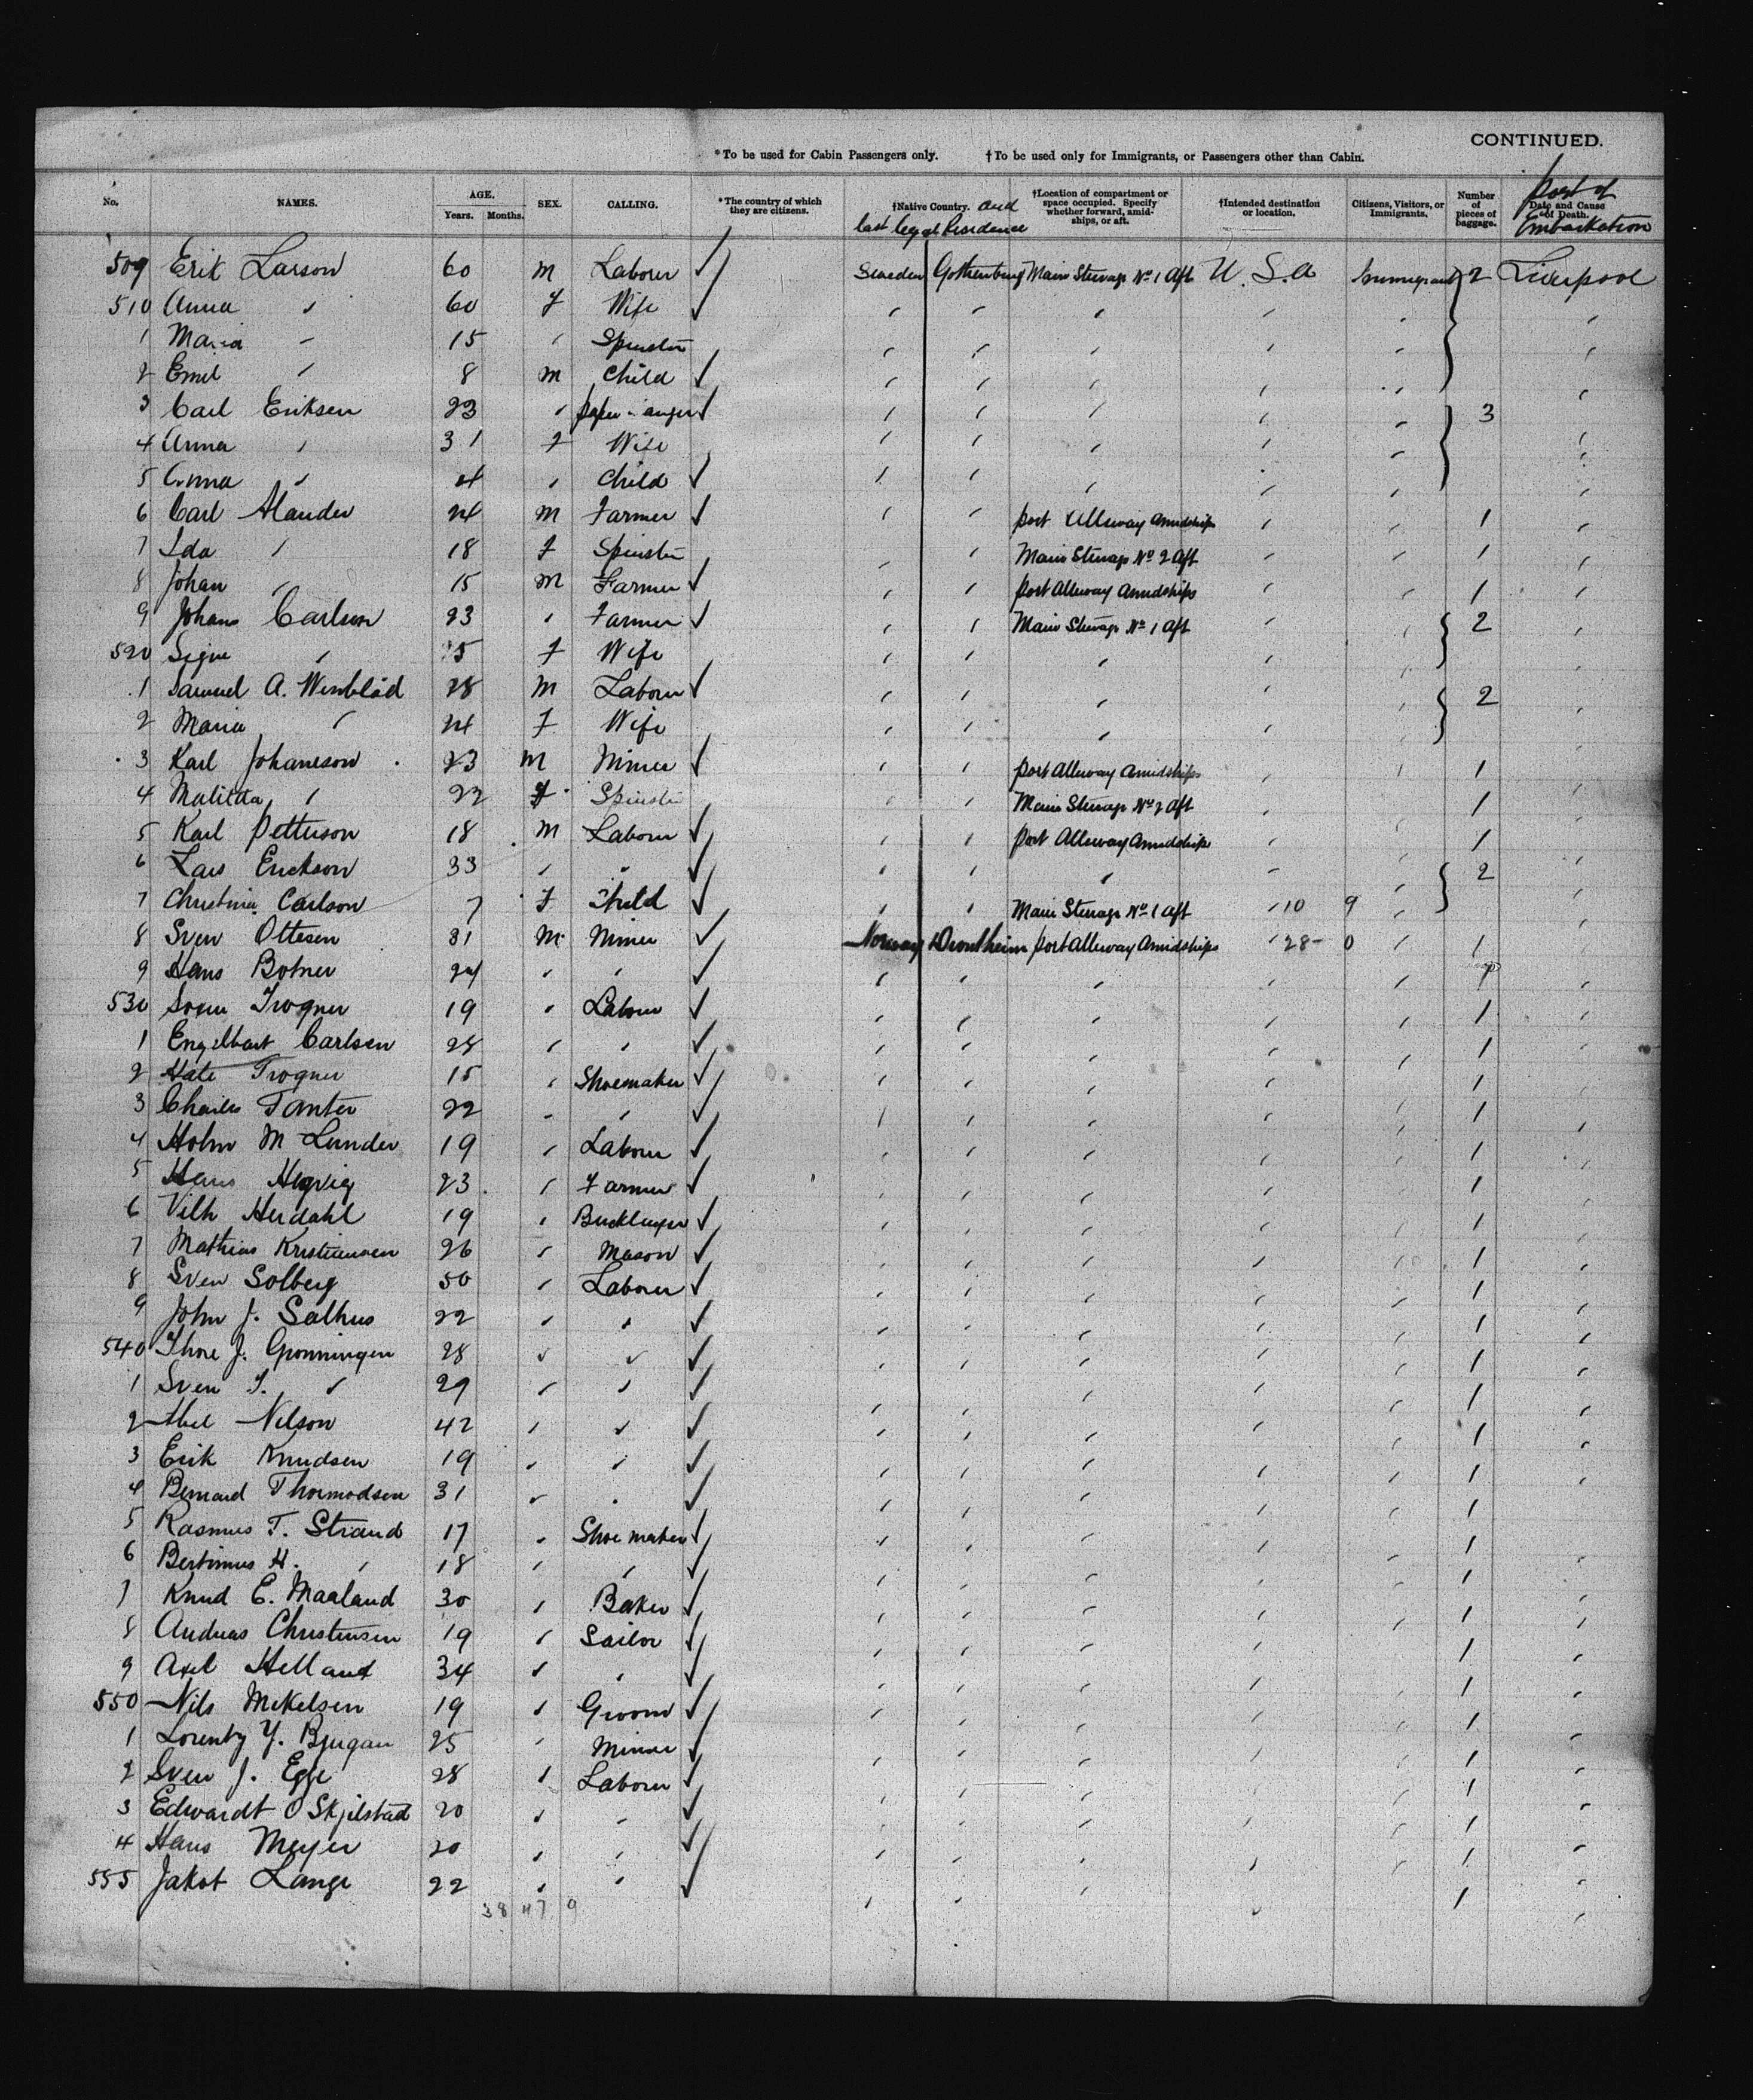 CONTINUED.
*To be used for Cabin Passengers only. †To be used only for Immigrants, or Passengers other than Cabin.
No. NAMES. AGE. Years. Months. SEX. CALLING. *The country of which they are citizens. †Native Country. and last legal Residence †Location of compartment or space occupied. Specify whether forward, amidships, or aft. †Intended destination or location. Citizens, Visitors, or Immigrants. Number of pieces of baggage. Port of Embarkation Date and Cause of Death.
509 Erik Larson 60 M Laborer ✓ Sweden Gothenburg Main Steerage No 1 Aft U.S.A Immigrant 2 Liverpool
510 Anna " 60 F Wife ✓ " " " " " "
1 Maria " 15 " Spinster " " " " " "
2 Emil " 8 M Child ✓ " " " " " "
3 Carl Eriksen 23 " ✓ " " " " " 3 "
4 Anna " 31 F Wife " " " " " "
5 Anna " 4 " Child ✓ " " " " " "
6 Carl 24 M Farmer ✓ " " Port Alleway Amidships " " 1 "
7 Ida " 18 F Spinster " " Main Steerage No 2 Aft " " 1 "
8 Johan " 15 M Farmer ✓ " " Port Alleway Amidships " " 1 "
9 Johans Carlson 23 " Farmer ✓ " " Main Steerage No 1 Aft " " 2 "
520 Signe " 25 F Wife " " " " " "
1 Samuel A. Wenblad 28 M Laborer ✓ " " " " " 2 "
2 Maria " 24 F Wife " " " " " "
3 Karl Johanson 23 M Miner ✓ " " Port Alleway Amidships " " 1 "
4 Matilda " 22 F Spinster " " Main Steerage No 2 Aft " " 1 "
5 Karl Petterson 18 M Laborer ✓ " " Port Alleway Amidships " " 1 "
6 Lars Erickson 33 " " ✓ " " " " " 2 "
7 Christina Carlson 7 F Child ✓ " " Main Steerage No 1 Aft " 10 9 " "
8 Sven Ottesen 31 M Miner ✓ Norway Drontheim Port Alleway Amidships " 28 - 0 " 1 "
9 Hans Botner 24 " " ✓ " " " " " 1 "
530 Trogner 19 " Laborer ✓ " " " " " 1 "
1 Engelbart Carlsen 28 " " ✓ " " " " " 1 "
2 Trogner 15 " Shoemaker ✓ " " " " " 1 "
3 Charles Tanter 22 " " ✓ " " " " " 1 "
4 Holm M Lunder 19 " Laborer ✓ " " " " " 1 "
5 Hans 23 " Farmer ✓ " " " " " 1 "
6 Vilh Herdahl 19 " Bricklayer ✓ " " " " " 1 "
7 Mathias Kristiansen 26 " Mason ✓ " " " " " 1 "
8 Sven Solberg 50 " Laborer ✓ " " " " " 1 "
9 John J. Salhus 22 " " ✓ " " " " " 1 "
540 Thore J. Gronningen 28 " " ✓ " " " " " 1 "
1 Sven T. " 29 " " ✓ " " " " " 1 "
2 Abel Nelson 42 " " ✓ " " " " " 1 "
3 Erik Knudsen 19 " " ✓ " " " " " 1 "
4 Bernard Thormodsen 31 " " ✓ " " " " " 1 "
5 Rasmus T. Strand 17 " Shoe maker ✓ " " " " " 1 "
6 Bertinius H. " 18 " " ✓ " " " " " 1 "
7 Knud E. Maaland 30 " Baker ✓ " " " " " 1 "
8 Andreas Christensen 19 " Sailor ✓ " " " " " 1 "
9 Axel Helland 34 " " ✓ " " " " " 1 "
550 Nils Mekelsen 19 " Groom ✓ " " " " " 1 "
1 Lorentz Y. Bjugan 25 " Miner ✓ " " " " " 1 "
2 Sven J. Egge 28 " Laborer ✓ " " " " " 1 "
3 Edwardt O Skjelstad 20 " " ✓ " " " " " 1 "
4 Hans Meyer 20 " " ✓ " " " " " 1 "
555 Jakob Lange 22 " " ✓ " " " " " 1 "
38 47 9